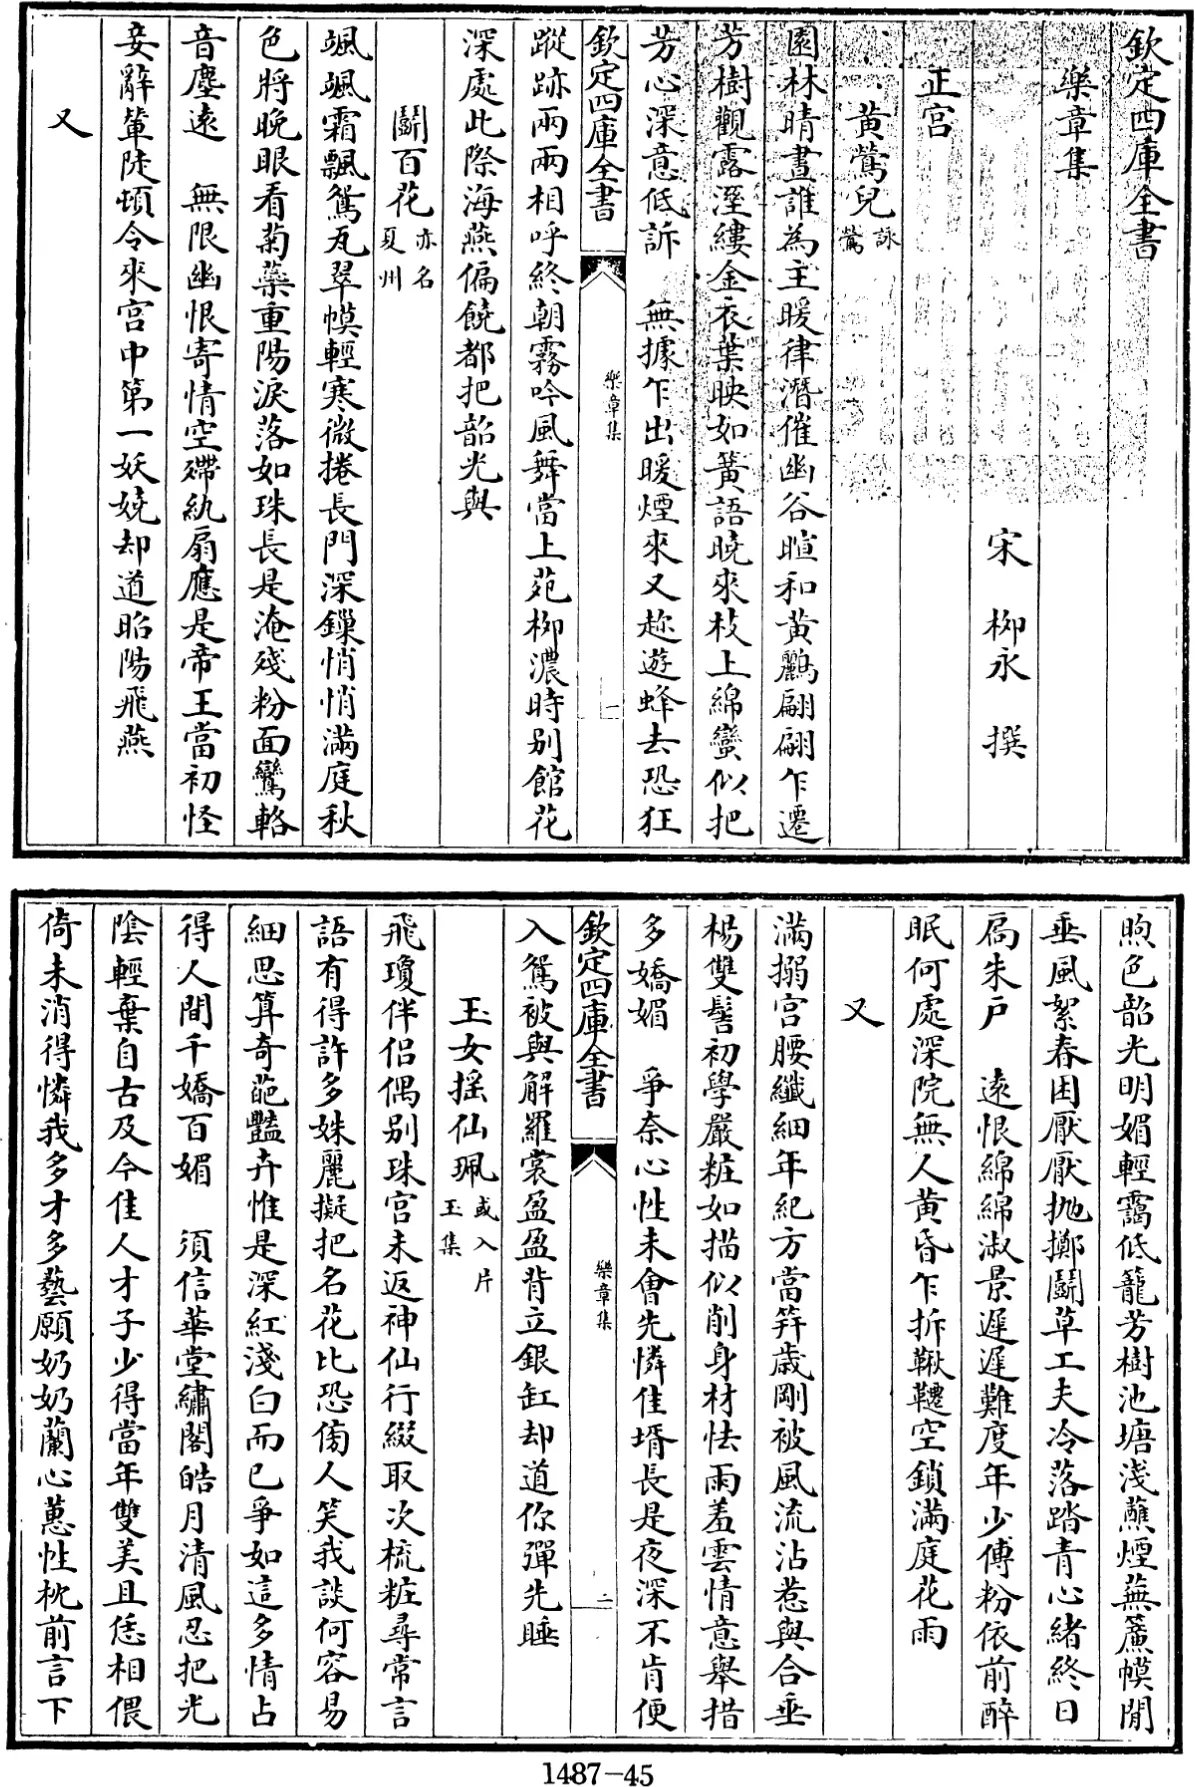 欽定四庫全書
樂章集
宋 柳永 撰
正宮
黃鶯兒 詠鶯
園林晴晝誰為主暖律潛催幽谷暄和黃鸝翩翩乍遷
芳樹觀露溼縷金衣葉映如簧語曉來枝上綿蠻似把
芳心深意低訴 無據乍出暖煙來又趂遊蜂去恐狂
欽定四庫全書 樂章集 一
蹤跡兩兩相呼終朝霧吟風舞當上苑柳濃時别館花
深處此際海燕偏饒都把韶光與
鬭百花 亦名夏州
颯颯霜飄鴛瓦翠幙輕寒微捲長門深鏁悄悄滿庭秋
色將晚眼看菊蘂重陽淚落如珠長是淹殘粉面鸞輅
音塵遠 無限幽恨寄情空殢紈扇應是帝王當初怪
妾辭輦陡頓令來宮中第一妖嬈却道昭陽飛燕
又
煦色韶光明媚輕靄低籠芳樹池塘浅蘸煙蕪簾幙閒
垂風絮春困厭厭抛擲鬭草工夫冷落踏青心緒終日
扃朱戶 遠恨綿綿淑景遲遲難度年少傅粉依前醉
眠何處深院無人黄昏乍拆鞦韆空鎖滿庭花雨
又
滿搦宮腰纖細年紀方當笄歲剛被風流沾惹與合垂
楊雙髻初學嚴粧如描似削身材怯雨羞雲情意舉措
多嬌媚 爭奈心性未會先憐佳壻長是夜深不肯便
欽定四庫全書 樂章集 二
入鴛被與解羅裳盈盈背立銀缸却道你彈先睡
玉女揺仙珮 或入片玉集
飛瓊伴侶偶别珠宮未返神仙行綴取次梳粧尋常言
語有得許多姝麗擬把名花比恐傍人笑我談何容易
細思算奇葩豔卉惟是深紅淺白而已爭如這多情占
得人間千嬌百媚 須信華堂繡閣皓月清風忍把光
陰輕棄自古及今佳人才子少得當年雙美且恁相偎
倚未消得憐我多才多藝願奶奶蘭心蕙性枕前言下
1487-45